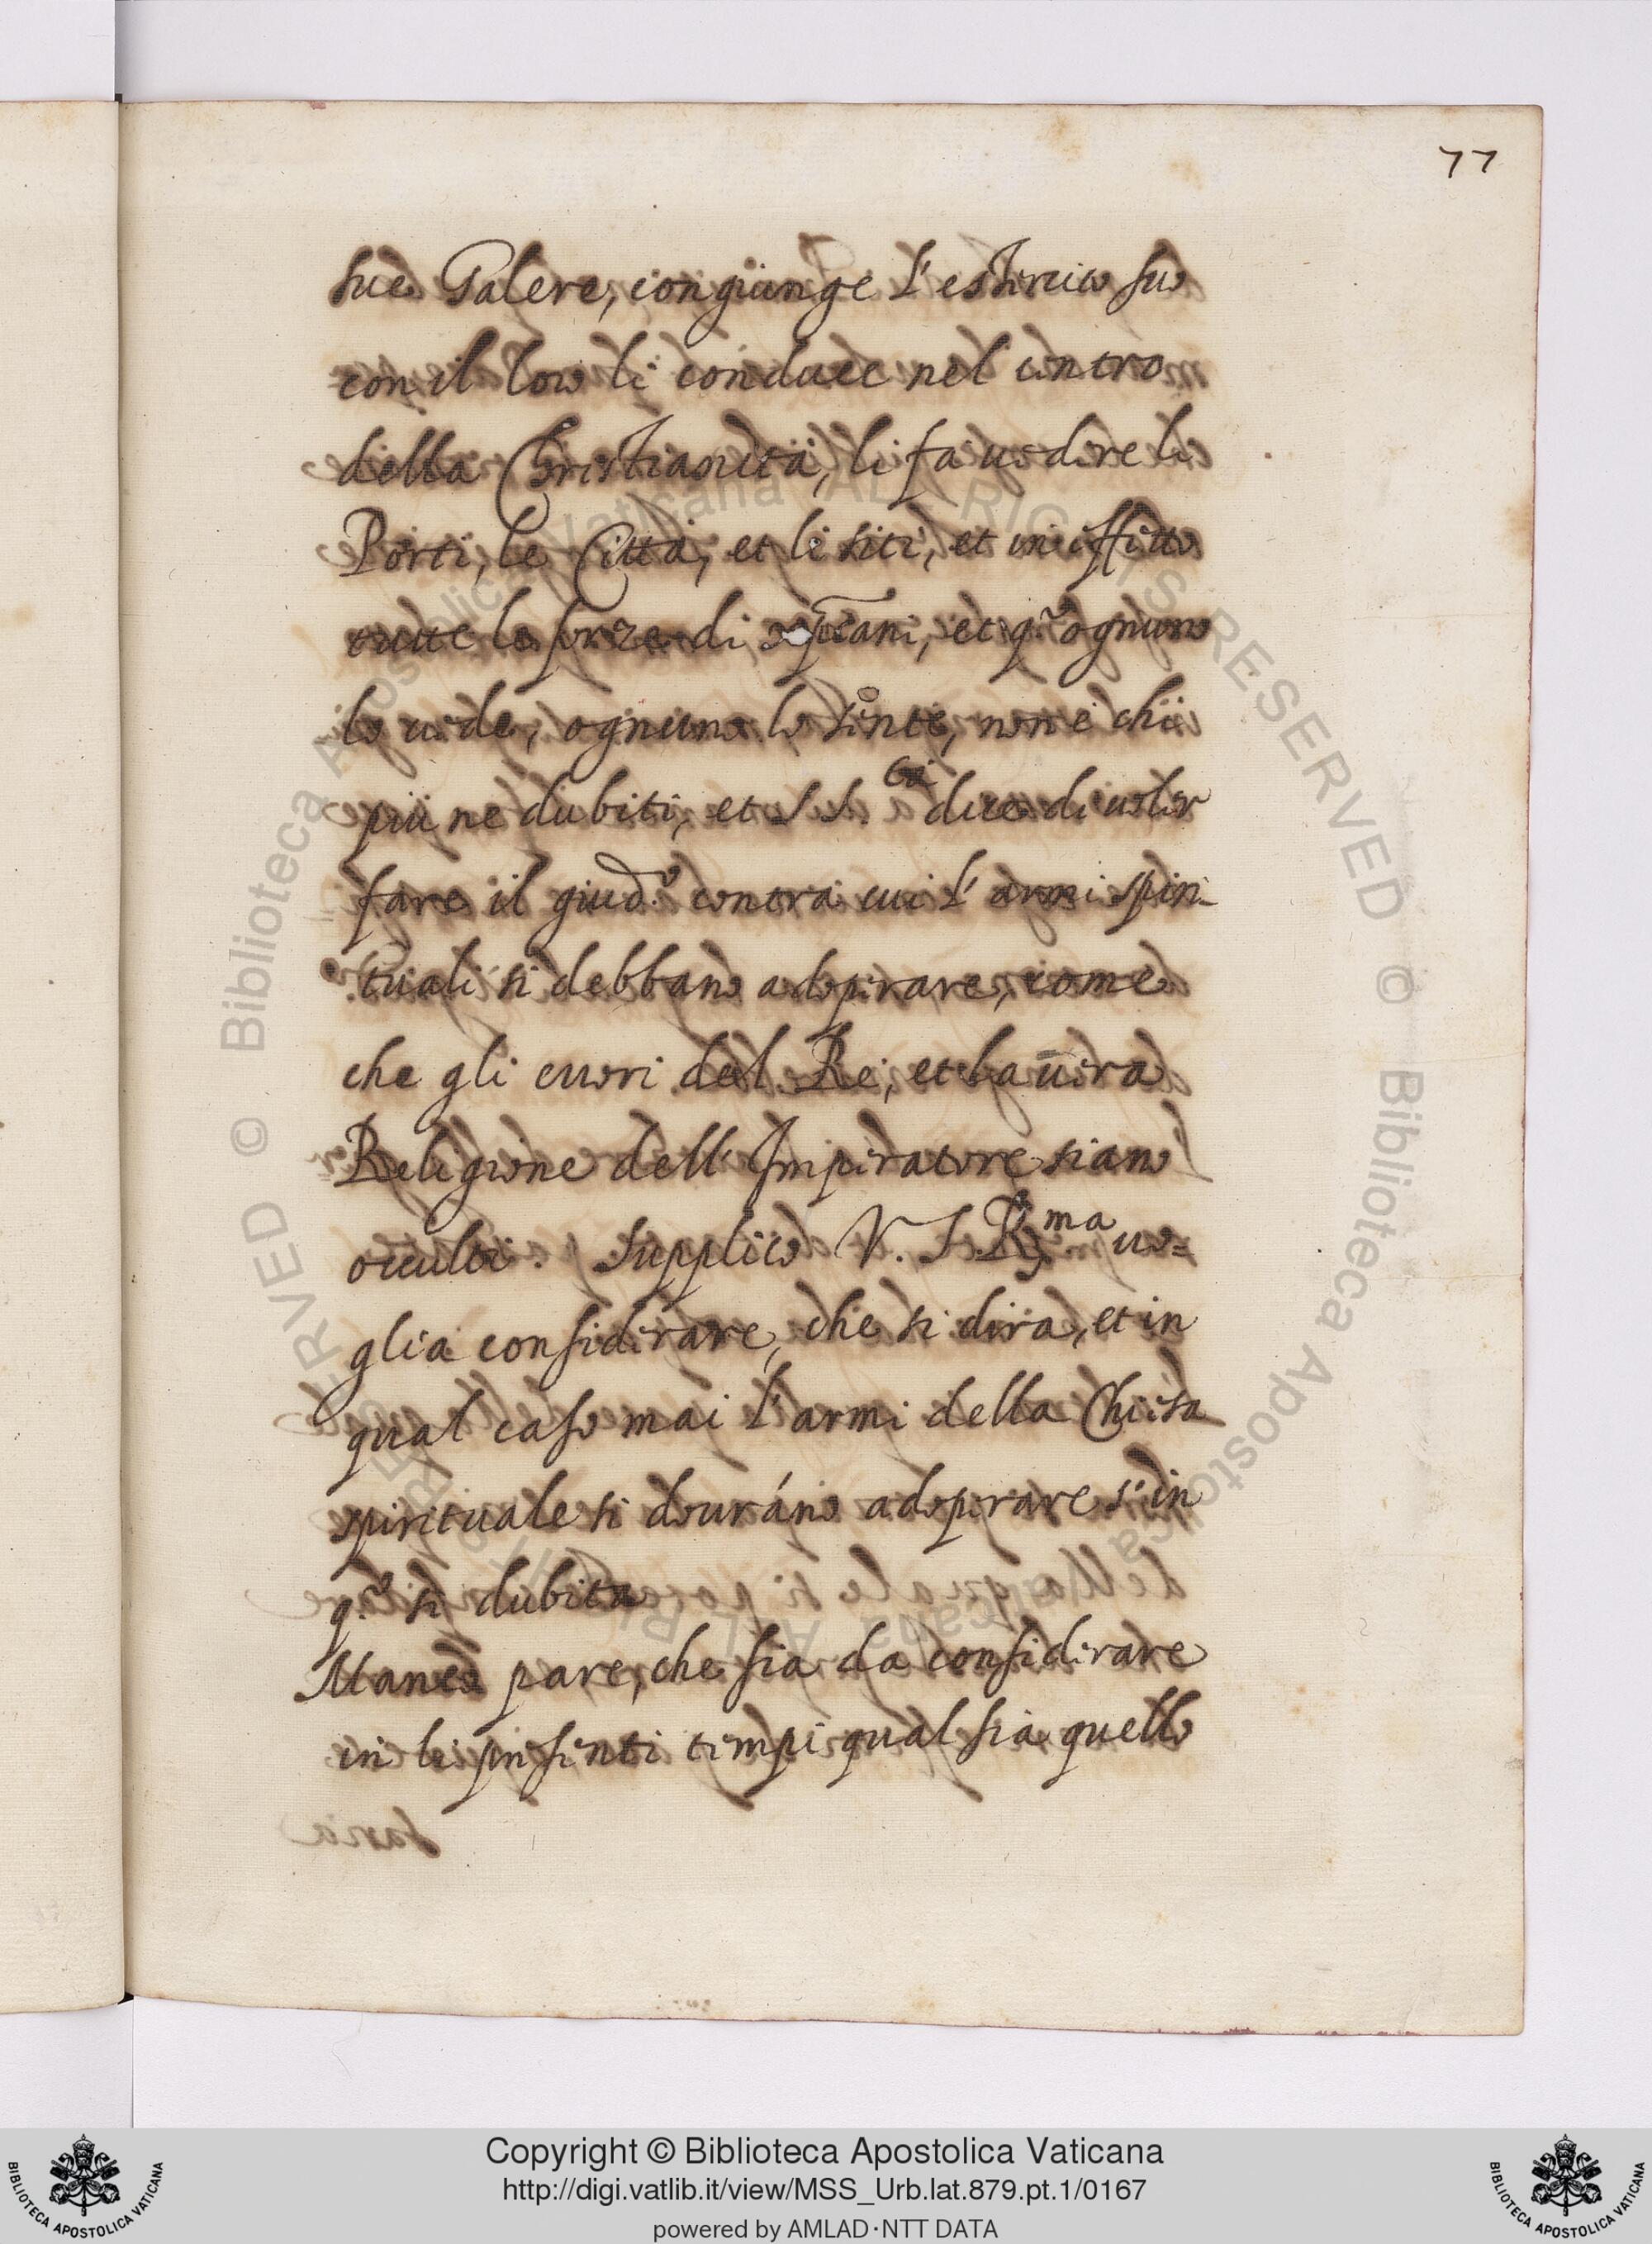 77
sue Galere, congiunge l'essercito suo
con il loro li conduce nel centro
della Christianità, li fa uedere li
Porti, le Città, et li siti, et in effetto
tutte le forze di xpiani, et q.to ognuno
lo uede, ognuno lo sente, non è chi
più ne dubiti, et S. S.tà dice di uoler
fare il giud.o contra cui l'armi spiri-
tuali si debbano adoperare, come
che gli cuori del Re, et la uera
Religione dell'Imperatore siano
occulti. Supplico V. S. R.ma uo=
glia considerare, che si dirà, et in
qual caso mai l'armi della Chiesa
spirituale si douráno adoperare s'in
q.o si dubita
Manco pare, che sia da considerare
in li pnsenti tempi qual sia quello
© Biblioteca Apostolica Vaticana ALL RIGHTS RESERVED
Copyright © Biblioteca Apostolica Vaticana
http://digi.vatlib.it/view/MSS_Urb.lat.879.pt.1/0167
powered by AMLAD·NTT DATA
BIBLIOTECA APOSTOLICA VATICANA
BIBLIOTECA APOSTOLICA VATICANA